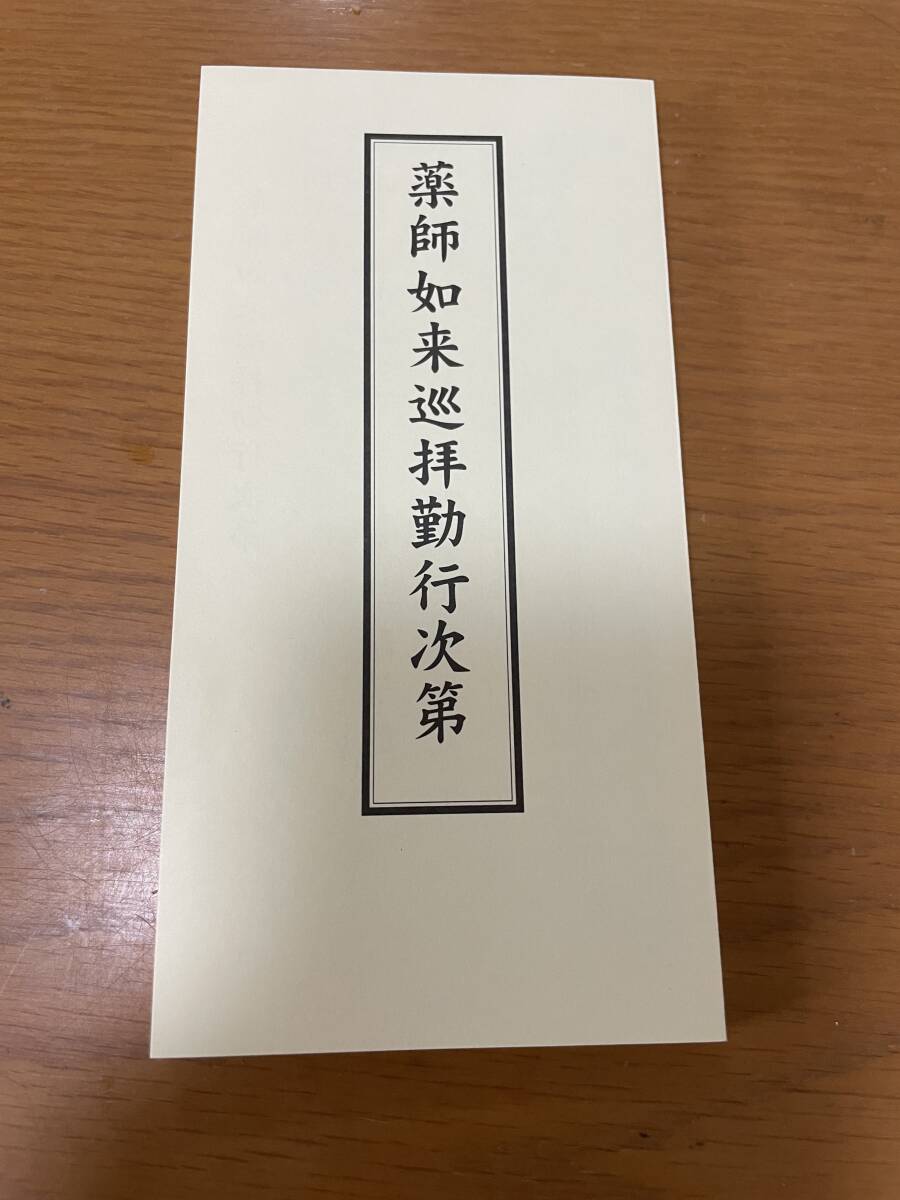 薬師如来巡拝勤行次第